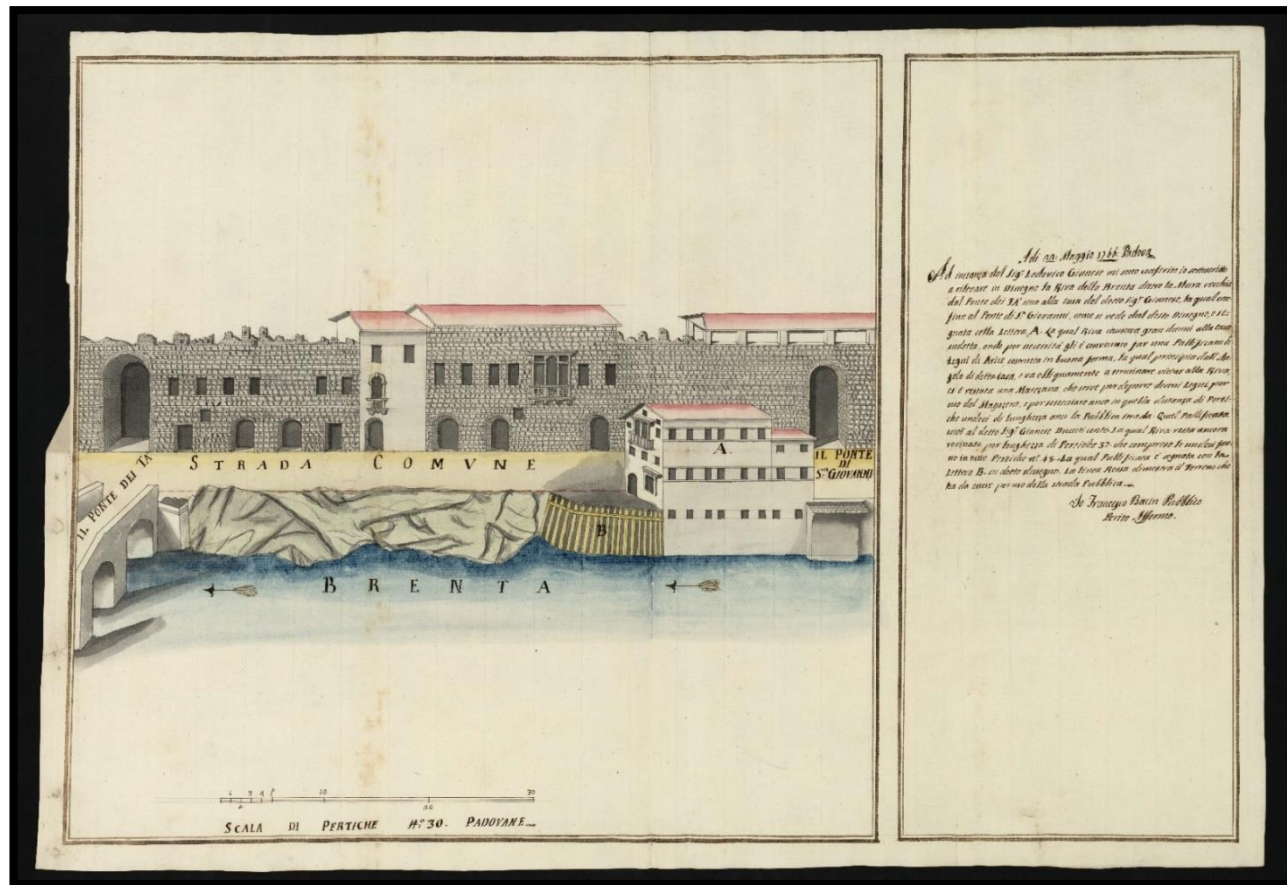 IL PONTE DEI TA
STRADA COMVNE
A.
IL PONTE
DI
Sn GIOVANNI
B
BRENTA
10
30
20
SCALA DI PERTICHE No 30. PADOVANE
Adi 22 Maggio 1766 Padova
Ad instanza del Sigr Lodovico Gianese mi sono conferito io sottoscritto
a rilevare in Disegno la Riva della Brenta dietro la Mura vecchia
dal Ponte dei TA' sino alla casa del detto Sigr Gianese, la qual
fine al Ponte di Sn Giovanni, come si vede dal detto Disegno, e se
gnata colla Lettera A. La qual Riva causava gran danni alla casa
sudetta, onde per necessità gli è convenuto far una Pallificata di
Legni di Arice in buona forma, la qual principia dall'An
golo di detta casa, e va obliquamente a terminare vicino alla Riva,
ci è restata una che serve per deponer diversi Legni per
uso del Magazeno, e per anco in quella distanza di Perti
che undeci di lunghezza anco la Pubblica strada. Qual Pallificata
costò al detto Sigr Gianese Ducati cento. La qual Riva resta ancora
rovinata per lunghezza di Pertiche 37. che comprese le undeci fan
no in tutto Pertiche no 48. La qual Pallificata è segnata con la
Lettera B. in detto disegno. La linea Rossa dimostra il Terreno che
ha da esser per uso della strada Pubblica
Io Francesco Bacin Pubblico
Perito Affermo.